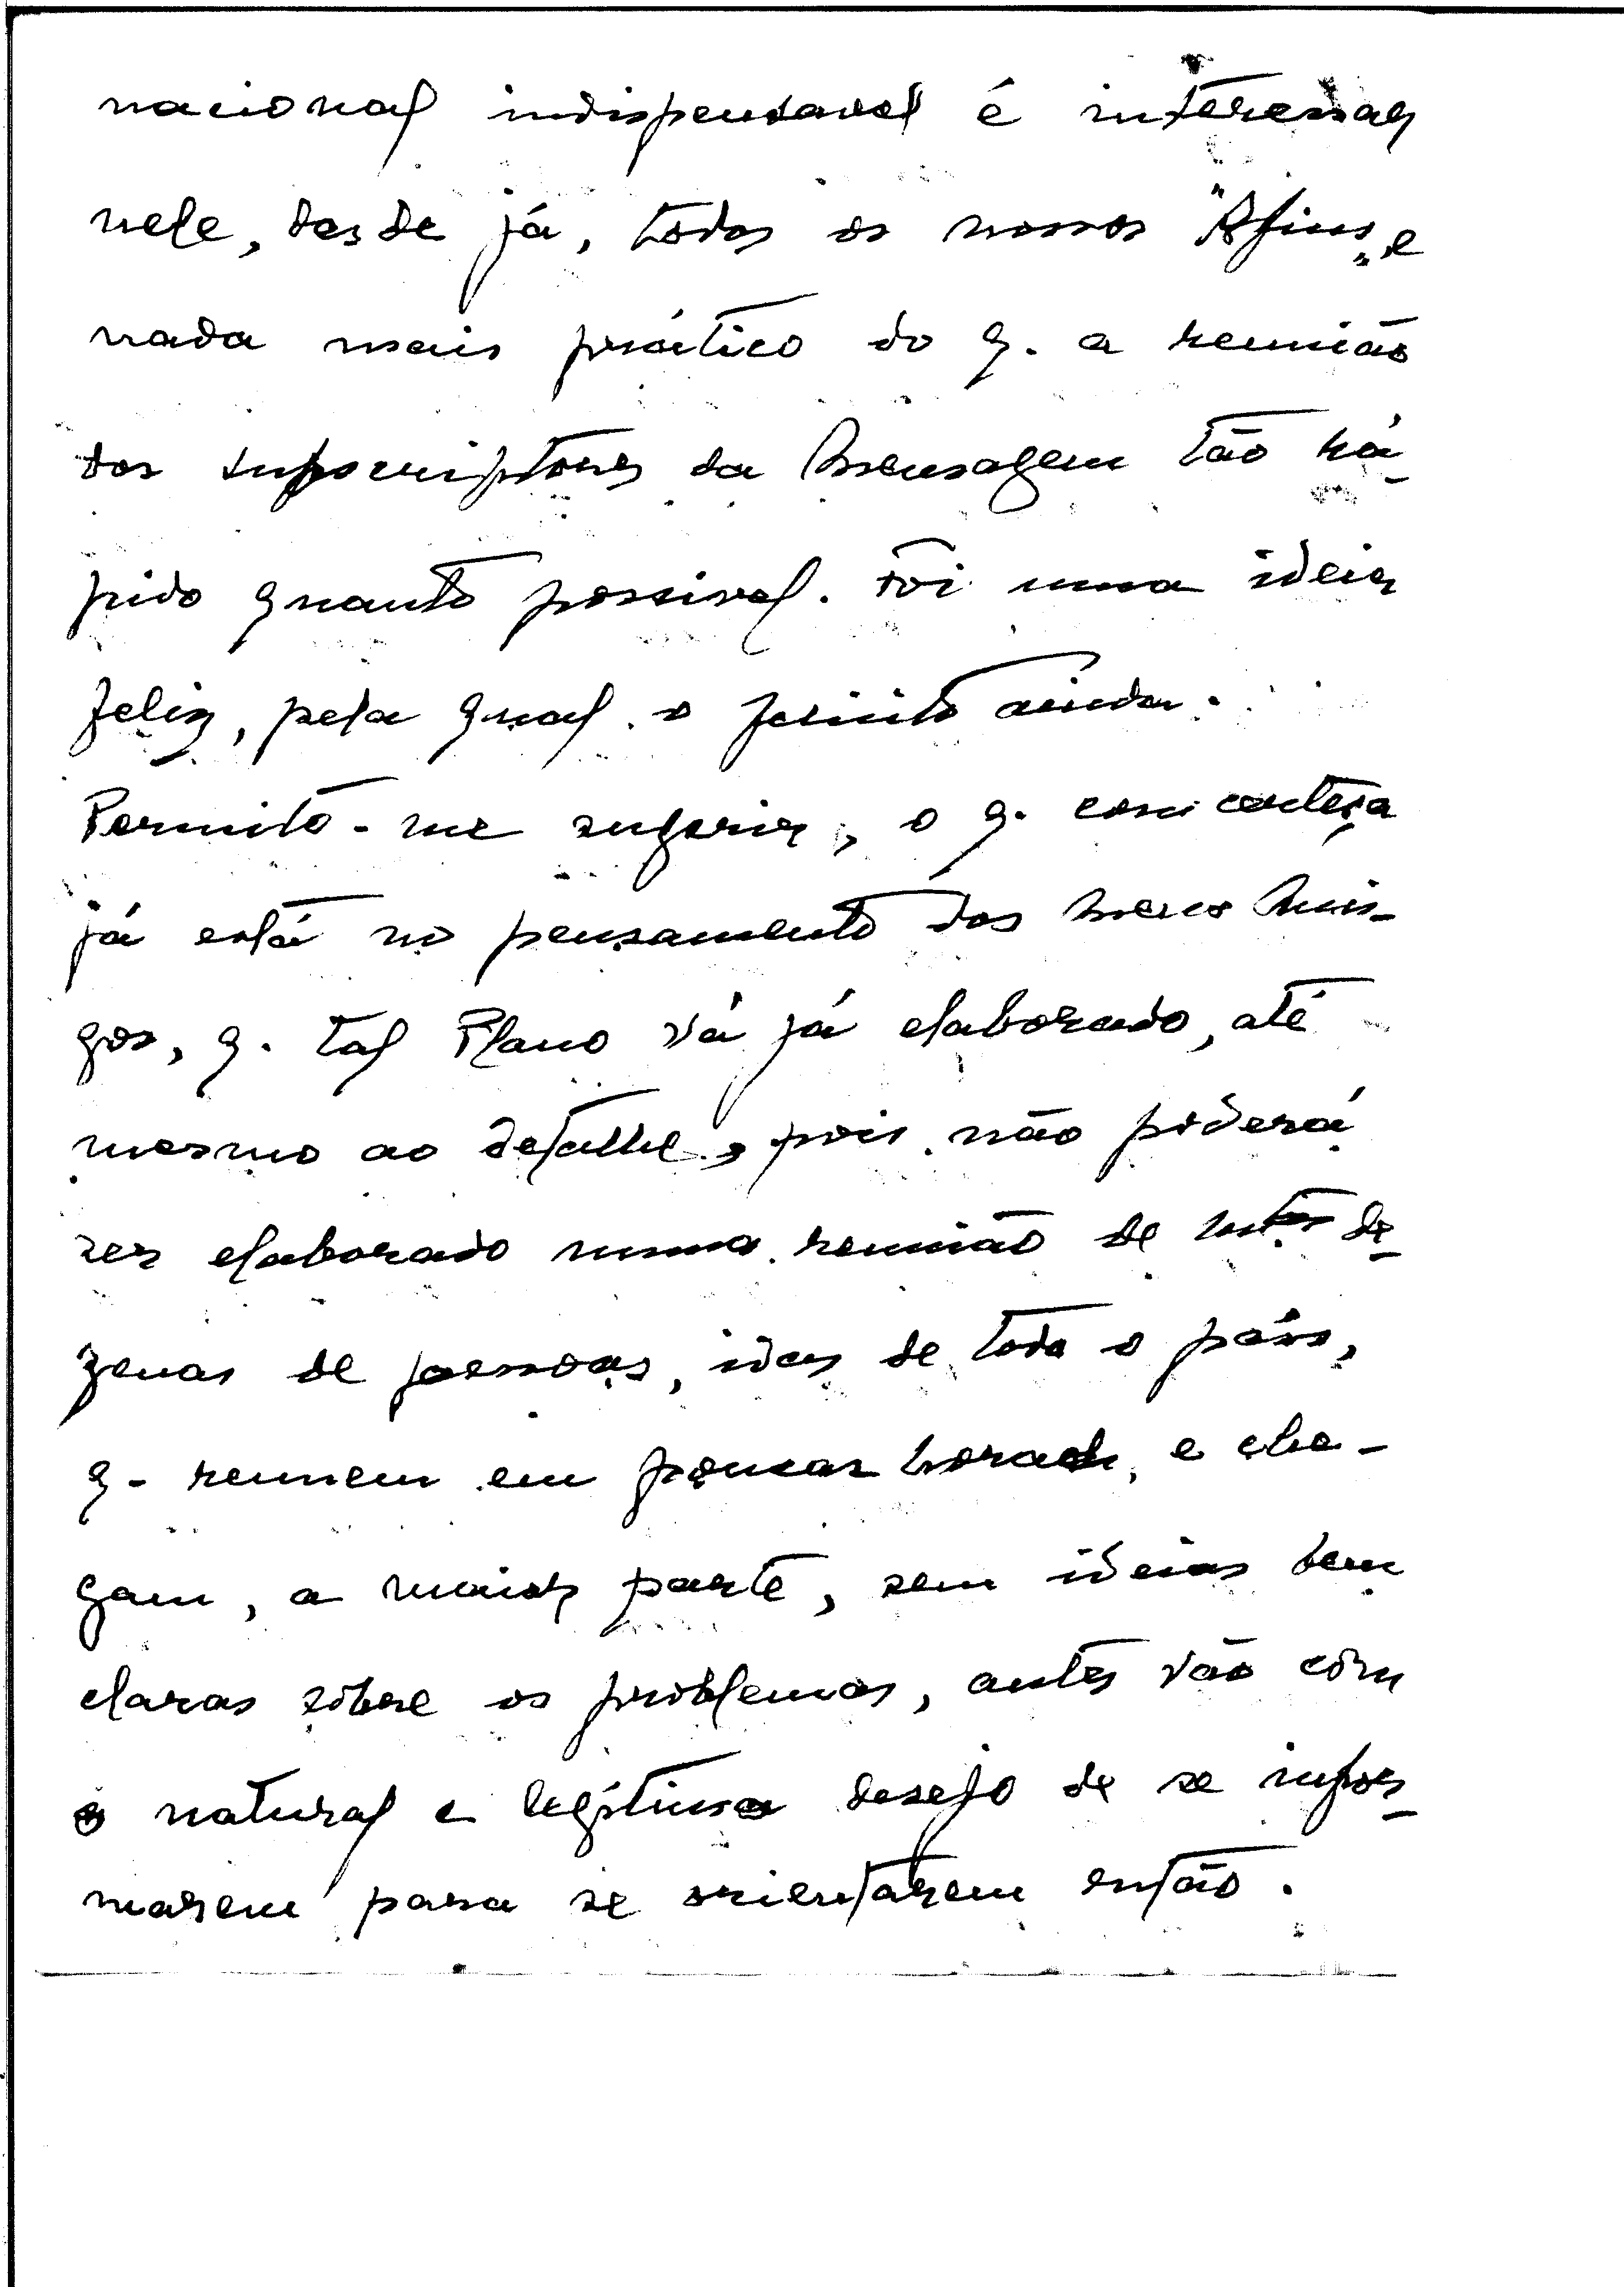 nacional indispensavel é interessar
nele, desde já, todos os nossos "Afins" e
nada mais prático do q. a reunião
dos subscriptores da Mensagem tão rá-
pido quanto possivel. Foi uma ideia
feliz, pela qual o felicito ainda.
Permito-me sugerir, o q. com certeza
já está no pensamento dos meus Ami-
gos, q. tal Plano vá já elaborado, até
mesmo ao detalhe, pois não poderá
ser elaborado numa reunião de de-
zenas de pessoas, idas de todo o país,
q. reunem em poucas horas, e che-
gam, a maior parte, sem ideias bem
claras sôbre os problemas, antes vão com
o natural e legítimo desejo de se infor-
marem para se orientarem então.